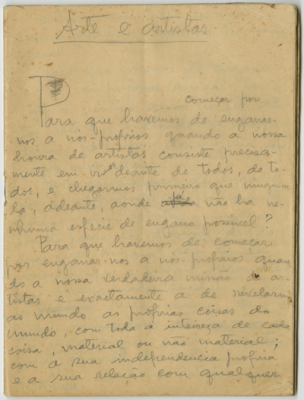 Arte e artistas
começar por
Para que havemos de enganar-
nos a nós-próprios quando a nossa
honra de artistas consiste precisa-
mente em vir deante de todos, de to-
dos, e chegarmos primeiro que ninguem
lá, adeante, aonde já não ha ne-
nhuma especie de engano possivel?
Para que havemos de começar
por enganar-nos a nós próprios quan-
do a nossa verdadeira missão de ar-
tistas é exactamente a de revelarmos
ao mundo as próprias coisas do
mundo, com toda a inteireza de cada
coisa, material ou não material;
com a sua independencia própria
e a sua relação com qualquer